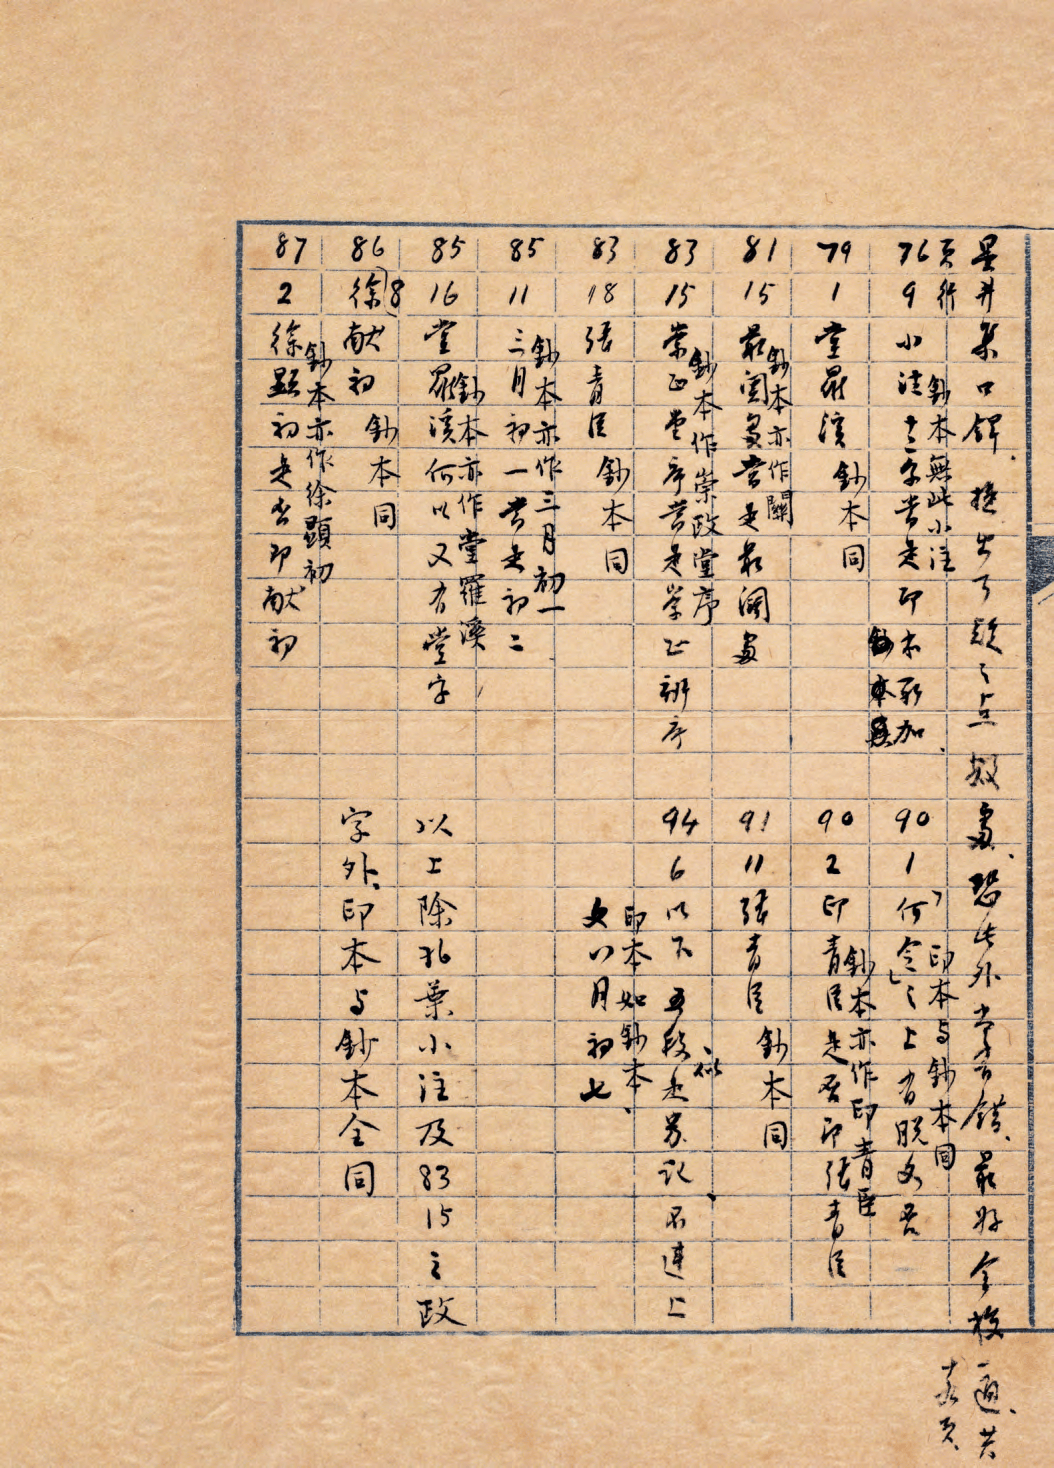 星井集口鐸.提出可疑之点数處、恐此外尚有錯、最好全校一通、共
十数頁、
76頁 9行 小注十二字当是印本所加、
鈔本無此小注
鈔本無
79 1 堂羅溪 鈔本同
81 15 最闊處当是最濶處
鈔本亦作闊
83 15 崇正堂序当是崇正辦序
鈔本作崇政堂序
83 18 張青臣 鈔本同
85 11 三月初一当是初二
鈔本亦作三月初一
85 16 堂羅溪何以又有堂字
鈔本亦作堂羅溪
86 8 徐献初 鈔本同
87 2 徐顯初是否即献初
鈔本亦作徐顯初
90 1 「何念」之上有脱文否
印本与鈔本同
90 2 印青臣是否即張青臣
鈔本亦作印青臣
91 11 張青臣 鈔本同
94 6 以下五段似是另記、不連上
印本如鈔本、
文八月初七
以上除76葉小注及83 15之政
字外、印本与鈔本全同